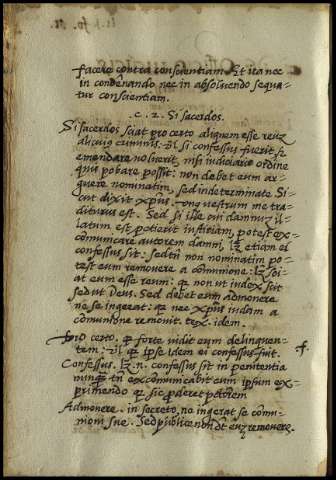 facere contra conscientiam. Et ita nec
in condēnando nec in absoluendo sequa-
tur conscientiam.
. c. 2. Si sacerdos.
Si sacerdos sciat pro certo aliquem esse reuȝ
alicuiꝯ criminis: uȝ si confessus fuerit, se
emendare noluerit, nisi iudiciario ordine
quis pobare possit: non debet eum ar-
guere nominatim, sed indeterminate. Si-
cut dixit xp̄us, Vnꝯ vestrum me tra-
diturus est. Sed si ille cui damnuȝ il-
latum est petierit iustitiam, potest ex-
cōmunicare autorem damni, lȝ etiam ei
confessus sit: sed tn̄ non nominatim po-
test eum remouere a cōmunione: lȝ sci-
at eum esse reum: qꝛ non ut iudex scit
sed ut Deus. Sed debet eum admonere
ne se ingerat: qꝛ nec xp̄us iudam a
cōmunione remouit. tex. idem.
certo, qꝛ forte uidit eum delinquen-
tem: uȝl qꝛ ipse idem ei confessus fuit. .f.
Confessus. lȝ .n. confessus sit in penitentia
tn̄ excōmunicabit eum ipsum ex-
primendo qꝛ sic pderet
Admonere. in secreto, ne ingerat se cōmu-
nioni sue. Sed publice non dt euȝ remouere.